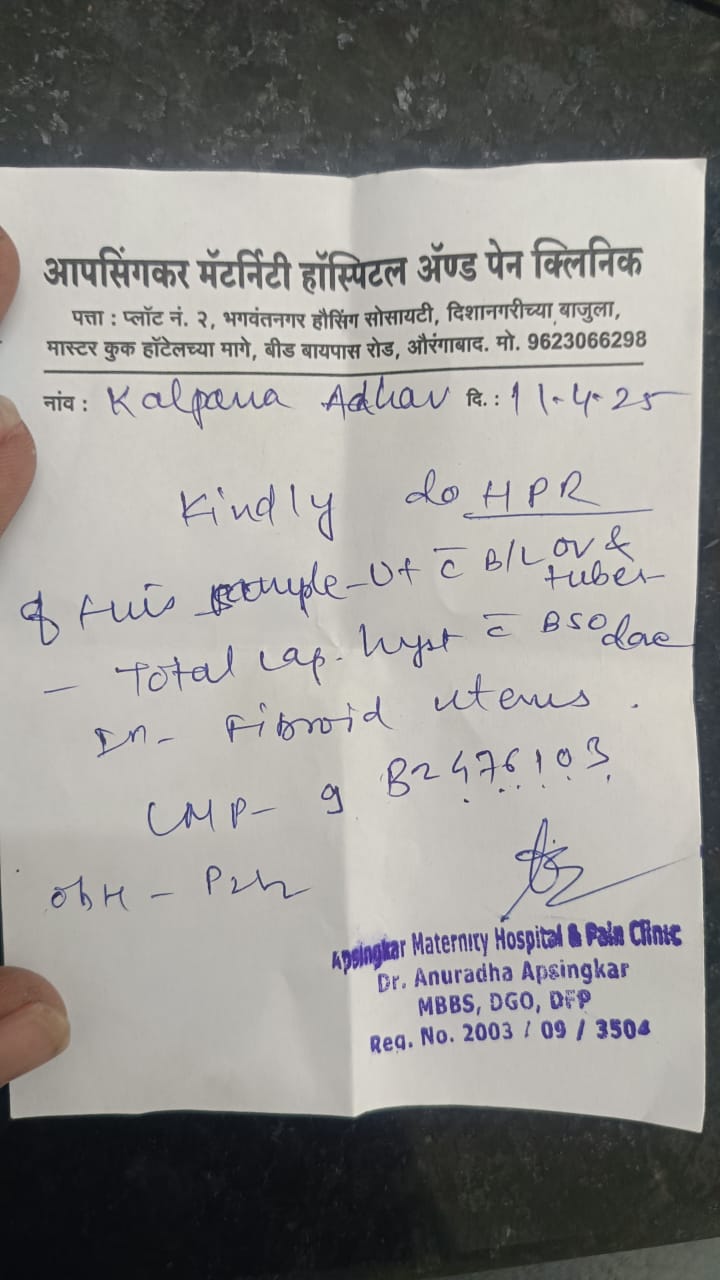 आपसिंगकर मॅटर्निटी हॉस्पिटल ॲण्ड पेन क्लिनिक
पत्ता : प्लॉट नं. २, भगवंतनगर हौसिंग सोसायटी, दिशानगरीच्या बाजुला,
मास्टर कुक हॉटेलच्या मागे, बीड बायपास रोड, औरंगाबाद. मो. 9623066298
नांव : Kalpana Adhav दि. : 11.4.25
Kindly do HPR
of this sample - Ut c̄ B/L ov &
tubes
- Total lap. hyst c̄ BSO
- Fibroid uterus.
LMP - B2476103
ObH -
Apsingkar Maternity Hospital & Pain Clinic
Dr. Anuradha Apsingkar
MBBS, DGO, DFP
Reg. No. 2003 / 09 / 3504